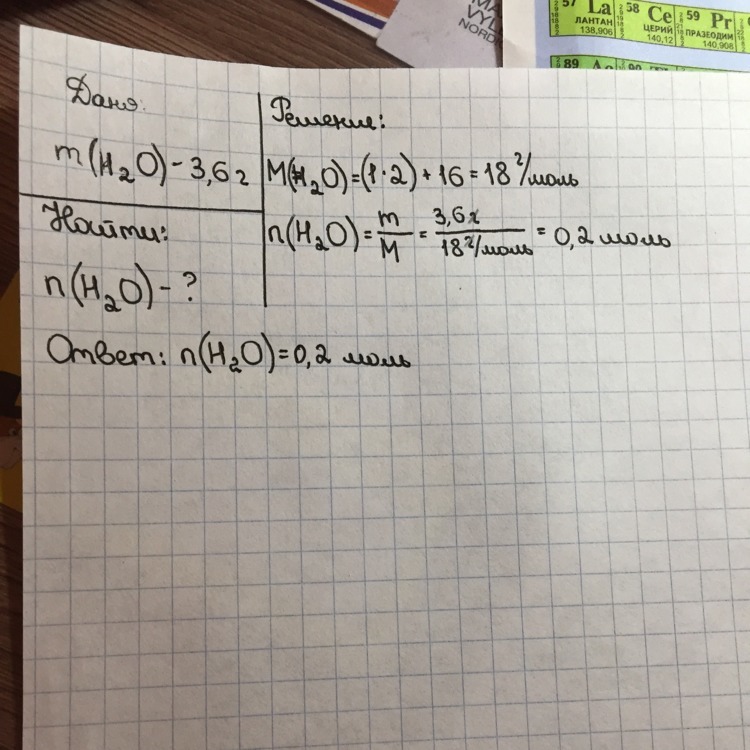 МА
VYL
NORD
57 La
ЛАНТАН
138,906
58 Ce
ЦЕРИЙ
140,12
59 Pr
ПРАЗЕОДИМ
140,908
89 Ac
90
Дано:
m(H₂O) - 3,6 г
Найти:
n(H₂O) - ?
Решение:
M(H₂O) = (1·2) + 16 = 18 г/моль
n(H₂O) = m/M = 3,6 г/18 г/моль = 0,2 моль
Ответ: n(H₂O) = 0,2 моль